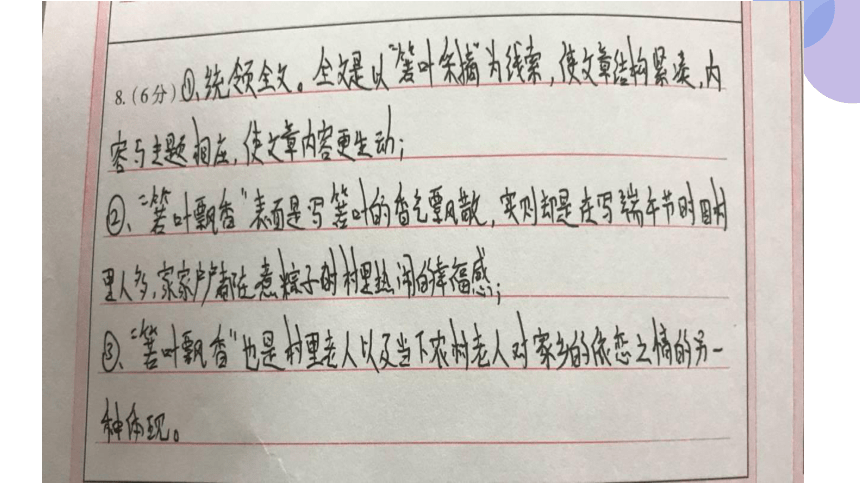 8.(6分)①、统领全文。全文是以“箬叶采摘”为线索,使文章结构紧凑,内
容与主题相应,使文章内容更生动;
②、“箬叶飘香”表面是写箬叶的香气飘散,实则却是在写端午节时回村
里人多,家家户户都在煮粽子时村里热闹的幸福感;
③、“箬叶飘香”也是村里老人以及当下农村老人对家乡的依恋之情的另一
种体现。